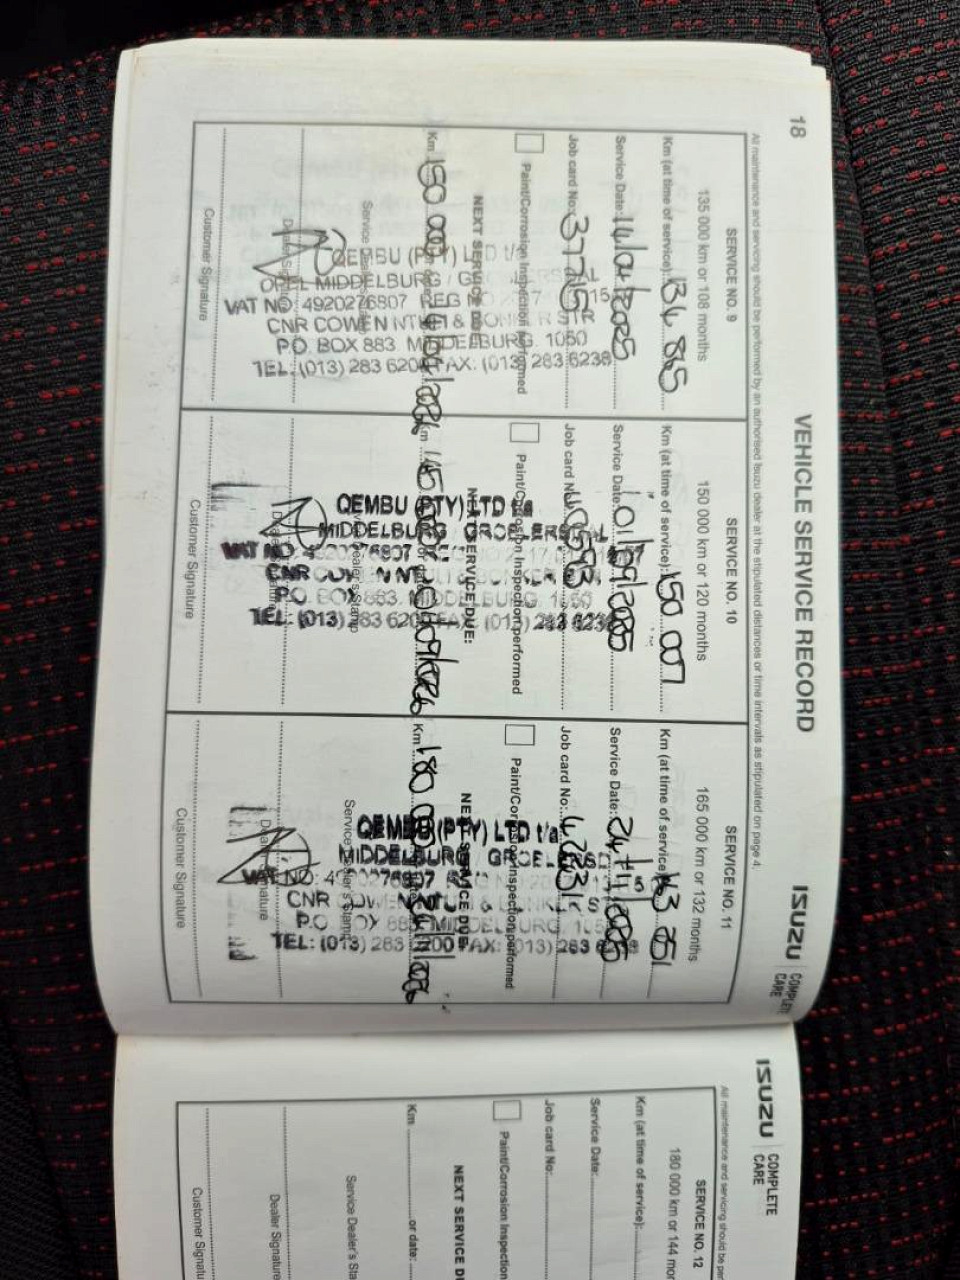 18
VEHICLE SERVICE RECORD
ISUZU
COMPLETE
CARE
All maintenance and servicing should be performed by an authorised Isuzu dealer at the stipulated distances or time intervals as stipulated on page 4.
SERVICE NO. 9
135 000 km or 108 months
Km (at time of service): 134 865
Service Date: 14/04/2025
Job card No: 37257
Paint/Corrosion Inspection performed
NEXT SERVICE DUE:
Km 150 000
QEMBU (PTY) LTD t/a
OPEL MIDDELBURG /
VAT NO: 4920276807 REG
CNR COWEN NTULI & BONKER STR
P.O. BOX 883, MIDDELBURG, 1050
TEL: (013) 283 6200 FAX: (013) 283 6238
Customer Signature
SERVICE NO. 10
150 000 km or 120 months
Km (at time of service): 150 007
Service Date: 01/09/2025
Job card No: 40593
Paint/Corrosion Inspection performed
NEXT SERVICE DUE:
Km
Service Dealer's Stamp
QEMBU (PTY) LTD t/a
MIDDELBURG / GROBLERSDAL
VAT NO: 4920276807 REG
CNR COWEN NTULI & BONKER STR
P.O. BOX 883, MIDDELBURG, 1050
TEL: (013) 283 6200 FAX: (013) 283 6238
Customer Signature
SERVICE NO. 11
165 000 km or 132 months
Km (at time of service): 163 851
Service Date: 24/11/2025
Job card No: 42831
Paint/Corrosion Inspection performed
NEXT SERVICE DUE:
Km 180 000
Service Dealer's Stamp
QEMBU (PTY) LTD t/a
MIDDELBURG / GROBLERSDAL
VAT NO: 4920276807 REG
CNR COWEN NTULI & BONKER STR
P.O. BOX 883, MIDDELBURG, 1050
TEL: (013) 283 6200 FAX: (013) 283 6238
Dealer Signature
Customer Signature
ISUZU
COMPLETE
CARE
All maintenance and servicing should be per
SERVICE NO. 12
180 000 km or 144 mon
Km (at time of service):
Service Date:
Job card No:
Paint/Corrosion Inspection
NEXT SERVICE DU
Km or date:
Service Dealer's Sta
Dealer Signature
Customer Signatu